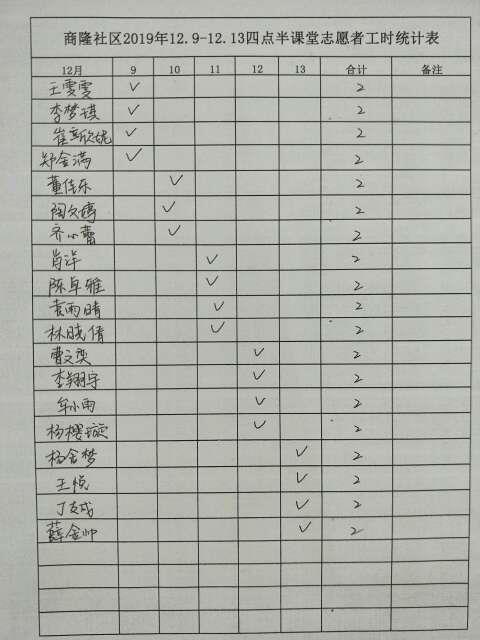 商隆社区2019年12.9-12.13四点半课堂志愿者工时统计表
12月 9 10 11 12 13 合计 备注
王雯雯 ✓ 2
李梦琪 ✓ 2
崔欣妮 ✓ 2
郑金满 ✓ 2
董佳乐 ✓ 2
陶文婷 ✓ 2
齐小蕾 ✓ 2
肖洋 ✓ 2
陈卓雅 ✓ 2
袁雨晴 ✓ 2
林晓倩 ✓ 2
曹文奕 ✓ 2
李翔宇 ✓ 2
牟小雨 ✓ 2
杨樱璇 ✓ 2
杨金梦 ✓ 2
王悦 ✓ 2
丁友成 ✓ 2
薛金帅 ✓ 2